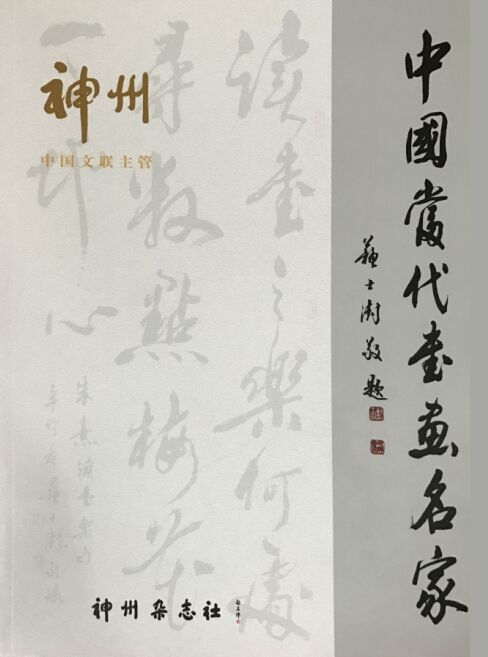 神州
中国文联主管
中國當代書畫名家
蘇士澍敬題
读書之樂何處
尋數點梅花
天地心
朱熹读書樂句
神州杂志社